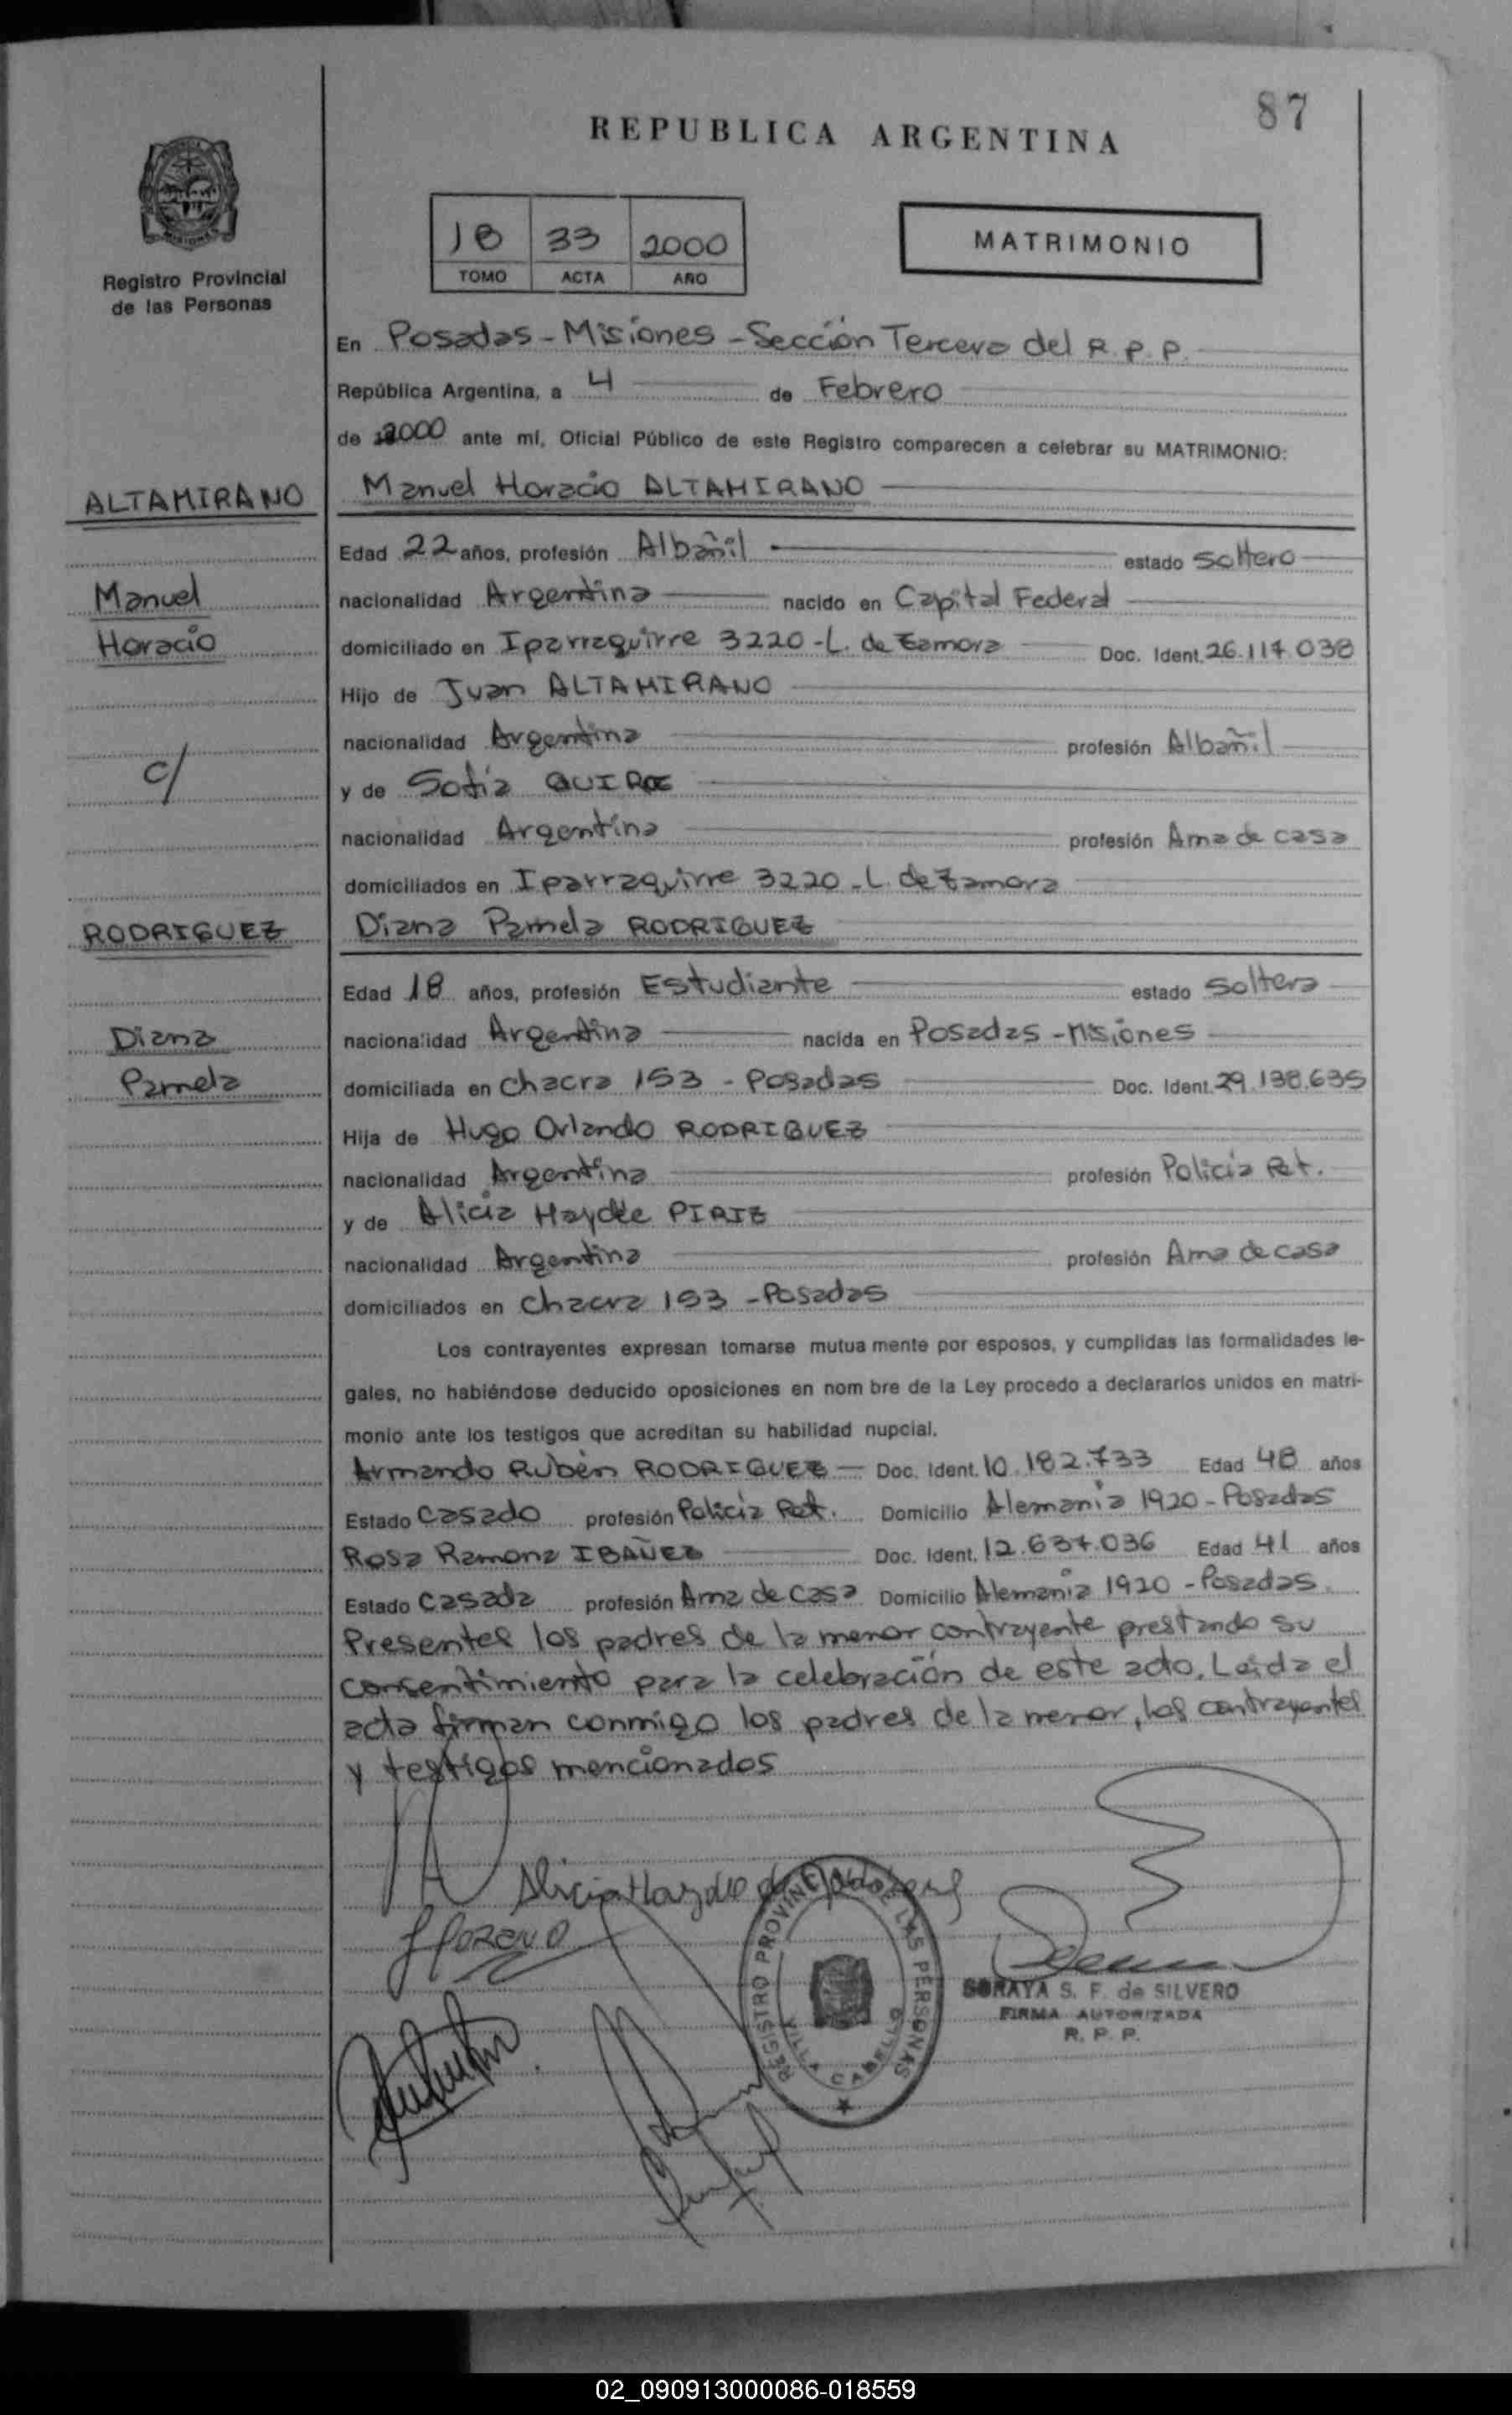 87
REPUBLICA ARGENTINA
Registro Provincial
de las Personas
1B 33 2000
TOMO ACTA AÑO
MATRIMONIO
En Posadas - Misiones - Sección Tercera del R.P.P.
República Argentina, a 4 de Febrero
de 2000 ante mí, Oficial Público de este Registro comparecen a celebrar su MATRIMONIO:
ALTAMIRANO
Manuel Horacio ALTAMIRANO
Edad 22 años, profesión Albañil estado soltero
Manuel
nacionalidad Argentina nacido en Capital Federal
Horacio
domiciliado en Iparraguirre 3220 - L. de Zamora Doc. Ident. 26.117.038
Hijo de Juan ALTAMIRANO
nacionalidad Argentina profesión Albañil
c/
y de Sofia
nacionalidad Argentina profesión Ama de casa
domiciliados en Iparraguirre 3220 - L. de Zamora
RODRIGUEZ
Diana Pamela RODRIGUEZ
Edad 18 años, profesión Estudiante estado soltera
Diana
nacionalidad Argentina nacida en Posadas - Misiones
Pamela
domiciliada en Chacra 153 - Posadas Doc. Ident. 29.138.635
Hija de Hugo Orlando RODRIGUEZ
nacionalidad Argentina profesión Policía Ret.
y de Alicia Haydée PIRIZ
nacionalidad Argentina profesión Ama de casa
domiciliados en Chacra 153 - Posadas
Los contrayentes expresan tomarse mutua mente por esposos, y cumplidas las formalidades le-
gales, no habiéndose deducido oposiciones en nom bre de la Ley procedo a declararlos unidos en matri-
monio ante los testigos que acreditan su habilidad nupcial.
Armando Rubén RODRIGUEZ Doc. Ident. 10.182.733 Edad 48 años
Estado Casado profesión Policía Ret. Domicilio Alemania 1920 - Posadas
Rosa Ramona IBAÑEZ Doc. Ident. 12.637.036 Edad 41 años
Estado Casada profesión Ama de casa Domicilio Alemania 1920 - Posadas
Presentes los padres de la menor contrayente prestando su
consentimiento para la celebración de este acto. Leida el
acta firman conmigo los padres de la menor, los contrayentes
y testigos mencionados
REGISTRO PROVINCIAL DE LAS PERSONAS
VILLA CABELLO
SORAYA S. F. de SILVERO
FIRMA AUTORIZADA
R. P. P.
02_090913000086-018559